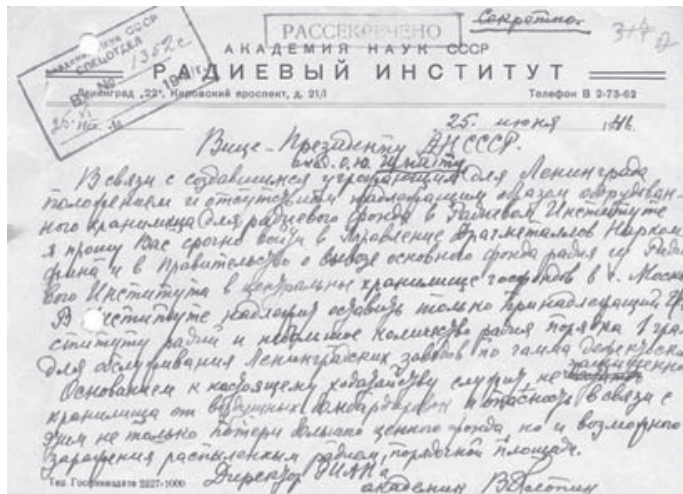 Секретно.
РАССЕКРЕЧЕНО
318
АКАДЕМИЯ НАУК СССР
СПЕЦОТДЕЛ
Вх. № 1352с
АКАДЕМИЯ НАУК СССР
РАДИЕВЫЙ ИНСТИТУТ
Ленинград „22“, Кировский проспект, д. 21/1 Телефон В 2-73-62
25. июня 1941г.
Вице-Президенту АН СССР.
акад. О.Ю. Шмидту
В связи с создавшимся угрожающим для Ленинграда
положением и отсутствием надлежащим образом оборудован-
ного хранилища для радиевого фонда в Радиевом Институте
я прошу Вас срочно войти в Управление Драгметаллов Нарком
фина и в Правительство о вывозе основного фонда радия из Радие
вого Института в центральное хранилище госфондов в г. Москве
В институте надлежит оставить только принадлежащий Ин
ституту радий и небольшое количество радия порядка 1 грам
для обслуживания Ленинградских заводов по гамма дефектоскопии
Основанием к настоящему ходатайству служит не защищенность
хранилища от воздушных бомбардировок и опасность в связи с
этим не только потери большого ценного фонда но и возможного
заражения распыленным радием, порядочной площади.
Директор РИАНа
академик В Хлопин
Тип. Госфиниздата 2227-1000